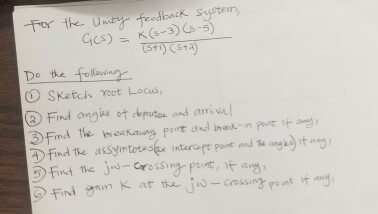 For the Unity feedback system,
G(s) = K(s-3)(s-5) / (s+1)(s+2)
Do the following
① Sketch root Locus,
② Find angles of departure and arrival
③ Find the breakaway point and break-in point if any,
④ Find the assymtotes (ie intercept point and the angles) if any,
⑤ Find the jω - Crossing point, if any,
⑥ Find gain K at the jω - Crossing point if any,